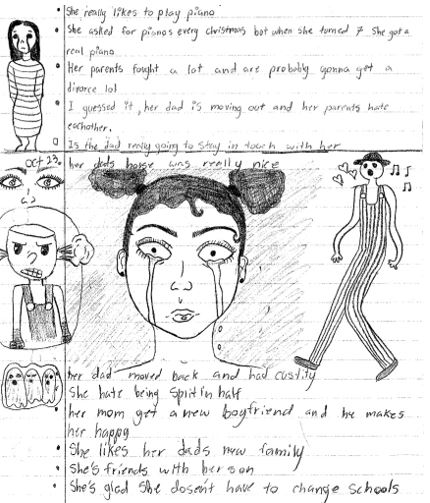 She really likes to play piano
She asked for pianos every christmas bot when she turned 7 She got a
real piano
Her parents fought a lot and are probably gonna get a
divorce lol
I guessed it, her dad is moving out and her parents hate
eachother.
Is the dad really going to stay in touch with her
oct 23.
her dads house was really nice
her dad moved back and had custity
She hate being Split in half
her mom get a new boyfriend and he makes
her happy
She likes her dads new family
She's friends with her son
She's glad she dosen't have to change schools